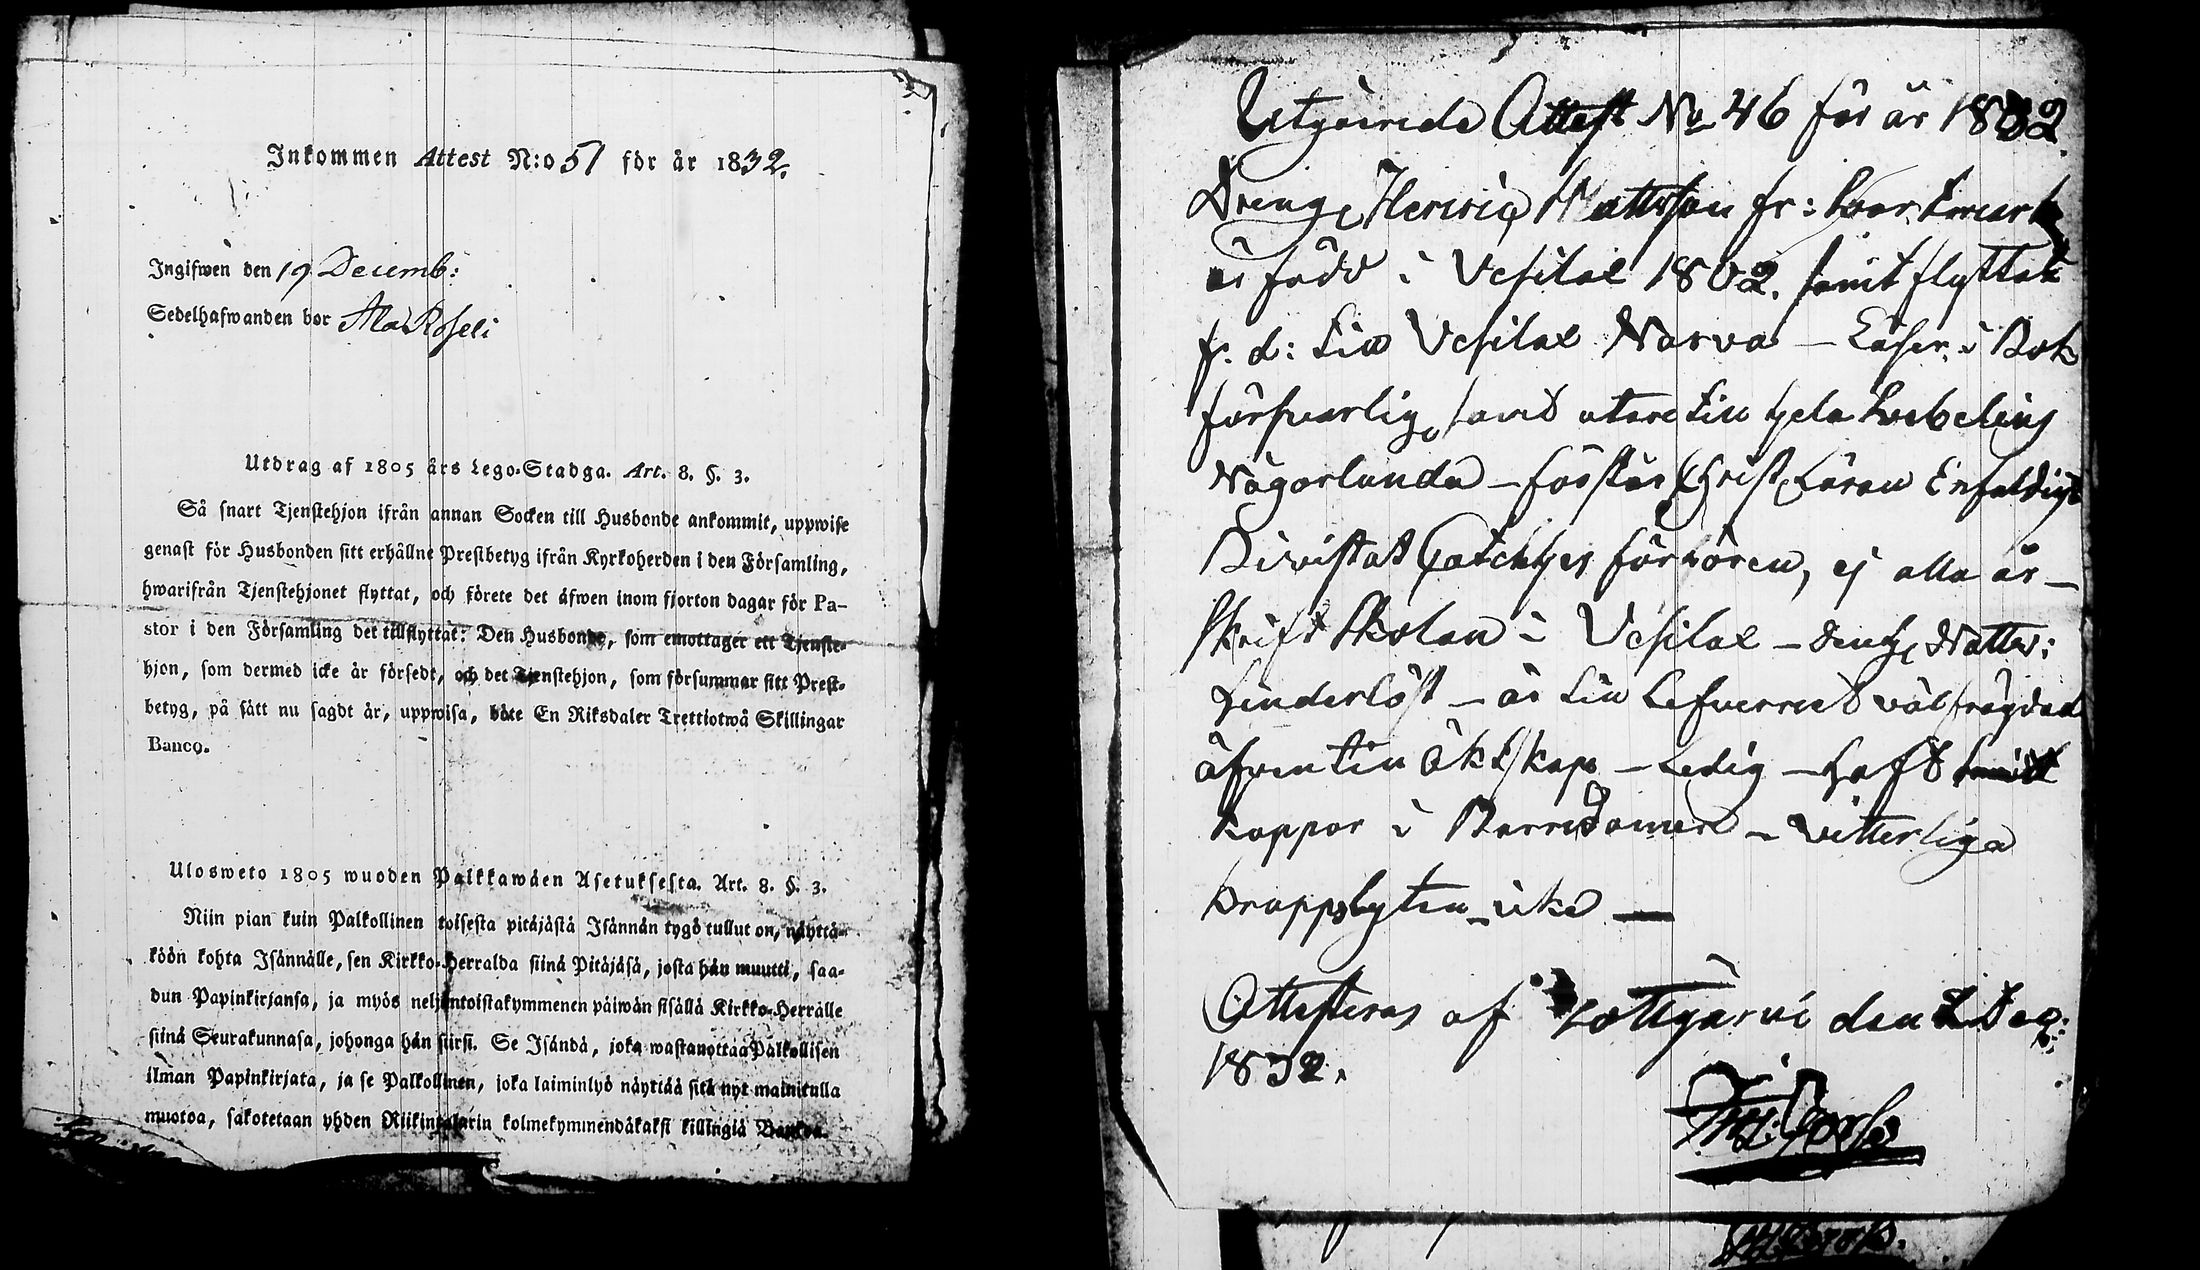 Inkommen Attest N:o 51 för år 1832.
Ingifwen den 19 Decemb:
Sedelhafwanden bor Ala Roseli
Utdrag af 1805 års Lego-Stadga. Art. 8. §. 3.
Så snart Tjenstehjon ifrån annan Socken till Husbonde ankommit, uppwise
genast för Husbonden sitt erhållne Prestbetyg ifrån Kyrkoherden i den Församling,
hwarifrån Tjenstehjonet flyttat, och förete det äfwen inom fjorton dagar för Pa-
stor i den Församling det tillflyttat: Den Husbonde, som emottager ett Tjenste-
hjon, som dermed icke är försedt, och det Tjenstehjon, som försummar sitt Prest-
betyg, på sätt nu sagdt är, uppwisa, böte En Riksdaler Trettiotwå Skillingar
Banco.
Ulosweto 1805 wuoden Palkkawäen Asetuksesta. Art. 8. §. 3.
Niin pian kuin Palkollinen toisesta pitäjästä Isännän tygö tullut on, näyttä-
köön kohta Isännälle, sen Kirkko-Herralda siinä Pitäjäsä, josta hän muutti, saa-
dun Papinkirjansa, ja myös neljäntoistakymmenen päiwän sisällä Kirkko-Herralle
siinä Seurakunnasa, johonga hän siirsi. Se Isändä, joka wastanottaa Palkollisen
ilman Papinkirjata, ja se Palkollinen, joka laiminlyö näyttää sitä nyt mainitulla
muotoa, sakotetaan yhden Riikintalarin kolmekymmendäkaksi killingiä Bankoa.
Utgående Attest No 46 för år 1832.
Dreng Henric Mattsson fr:
är född i Vesilax 1802. samt flyttat
fr. d: till Vesilax Narva – Läser i Bok
försvarlig, samt utan till hela
Någorlunda – förstår Christ. Läran Enfaldigt
Bivistat Catechet förhören, ej alla år –
Skrift Skolan i Vesilax – Nattv:
hinderlöst – är till Lefvernet väl frägdad
äfven till äktskap – Ledig – haft
koppor i Barndomen – vitterliga
kroppslyten – icke —
Attesteras af Tottijärvi den 2 Dec:
1832.